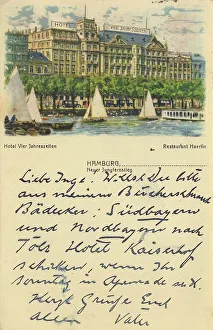 HOTEL VIER JAHRESZEITEN
Hotel Vier Jahreszeiten Restaurant Haerlin
HAMBURG,
Neuer Jungfernstieg
Liebe Inge! Willst Du bitte
aus meinem Bücherschrank
Bädeker: Südbayern
und Nordbayern nach
Tölz Hotel Kaiserhof
schicken, wenn Ihr
Sonntag in
Herzl. Grüße Euch
Allen Vater